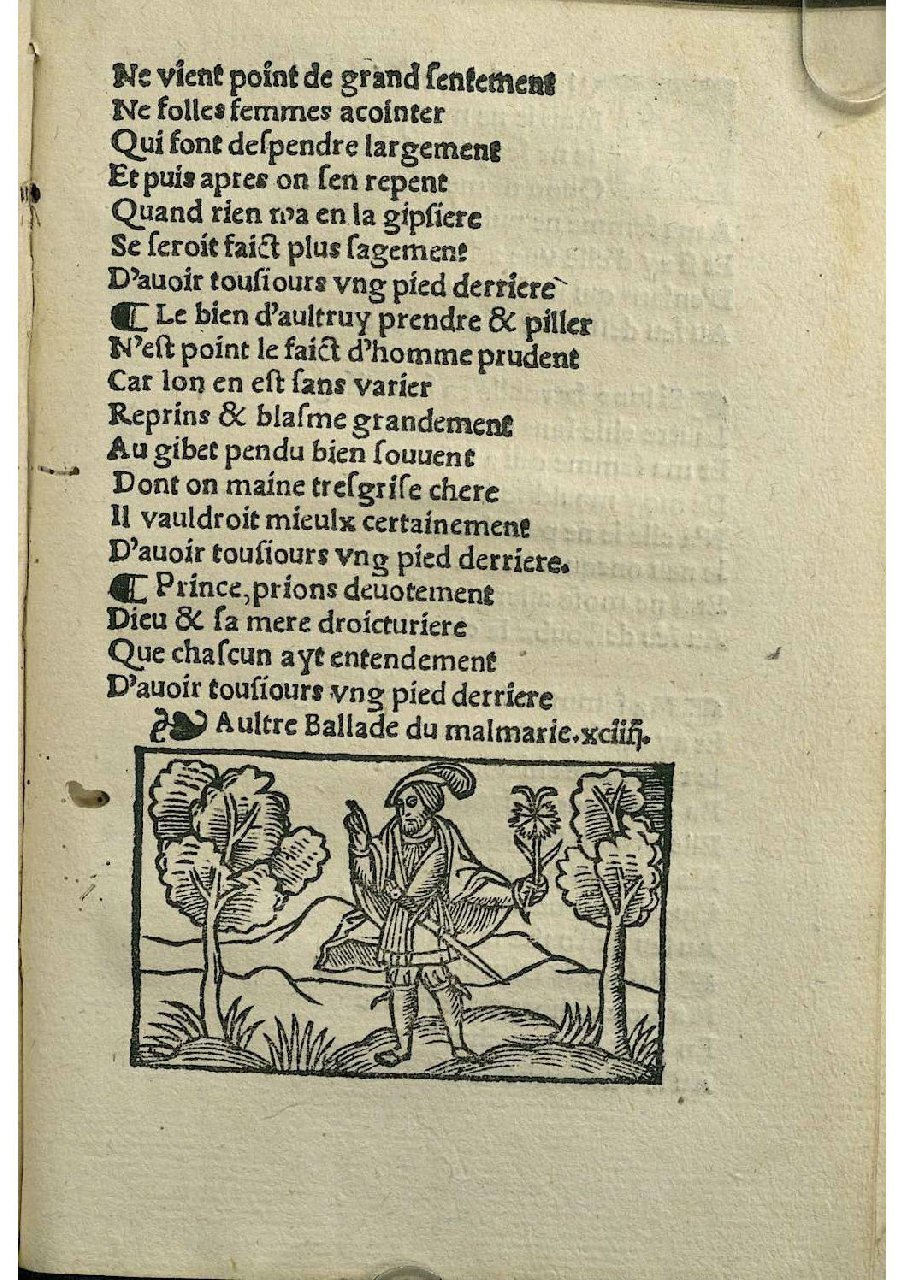 Ne vient point de grand ſentement
Ne folles femmes acointer
Qui font deſpendre largement
Et puis apres on ſen repent
Quand rien na en la gipſiere
Se ſeroit faict plus ſagement
D'auoir touſiours vng pied derriere
¶ Le bien d'aultruy prendre & piller
N'est point le faict d'homme prudent
Car lon en est ſans varier
Reprins & blaſme grandement
Au gibet pendu bien ſouuent
Dont on maine treſgriſe chere
Il vauldroit mieulx certainement
D'auoir touſiours vng pied derriere.
¶ Prince, prions deuotement
Dieu & ſa mere droicturiere
Que chaſcun ayt entendement
D'auoir touſiours vng pied derriere
❧ Aultre Ballade du malmarie. xciiij.